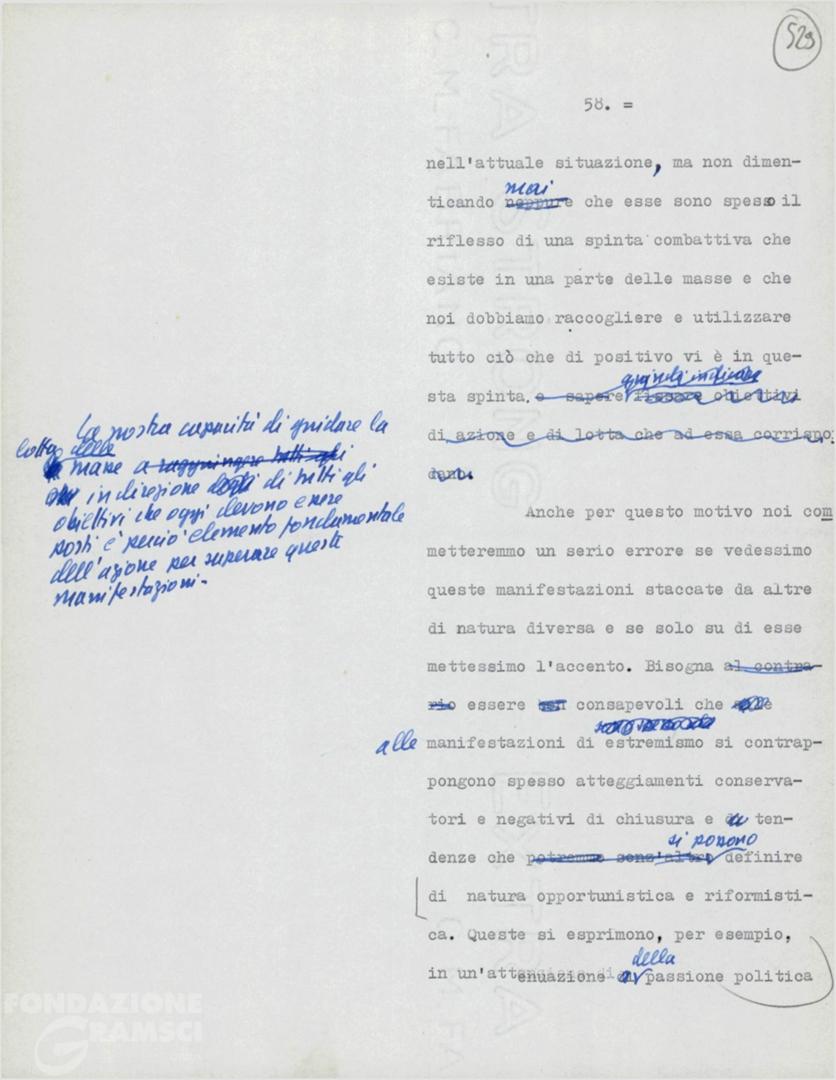 529
58. =
nell'attuale situazione, ma non dimen-
mai
ticando neppure che esse sono spesso il
riflesso di una spinta combattiva che
esiste in una parte delle masse e che
noi dobbiamo raccogliere e utilizzare
tutto ciò che di positivo vi è in que-
quindi indicare
sta spinta. e sapere fissare obiettivi
di azione e di lotta che ad essa corrispo
dano.
La nostra capacità di guidare la
lotta delle
masse a raggiungere tutti gli
in direzione di tutti gli
obiettivi che oggi devono essere
posti è perciò elemento fondamentale
dell'azione per superare queste
manifestazioni.
Anche per questo motivo noi com
metteremmo un serio errore se vedessimo
queste manifestazioni staccate da altre
di natura diversa e se solo su di esse
mettessimo l'accento. Bisogna al contra-
rio essere ben consapevoli che
alle manifestazioni di estremismo si contrap-
pongono spesso atteggiamenti conserva-
tori e negativi di chiusura e ten-
si possono
denze che potremmo senz'altro definire
di natura opportunistica e riformisti-
ca. Queste si esprimono, per esempio,
della
in un'attenuazione di passione politica
FONDAZIONE
GRAMSCI
EXTRA STRONG